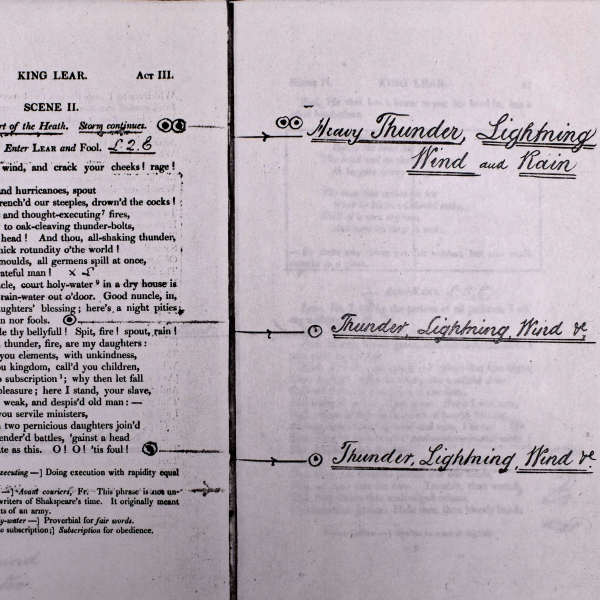 KING LEAR. ACT III.
SCENE II.
rt of the Heath. Storm continues.
Enter LEAR and Fool. £2.6
wind, and crack your cheeks! rage!
and hurricanoes, spout
rench'd our steeples, drown'd the cocks!
and thought-executing⁷ fires,
to oak-cleaving thunder-bolts,
head! And thou, all-shaking thunder,
hick rotundity o'the world!
moulds, all germens spill at once,
rateful man!
cle, court holy-water⁹ in a dry house is
rain-water out o'door. Good nuncle, in,
ughters' blessing; here's a night pities
n nor fools.
le thy bellyfull! Spit, fire! spout, rain!
thunder, fire, are my daughters:
you elements, with unkindness,
ou kingdom, call'd you children,
o subscription¹; why then let fall
pleasure; here I stand, your slave,
weak, and despis'd old man: —
you servile ministers,
two pernicious daughters join'd
ender'd battles, 'gainst a head
ite as this. O! O! 'tis foul!
executing —] Doing execution with rapidity equal
—] Avant couriers, Fr. This phrase is not un-
writers of Shakspeare's time. It originally meant
ts of an army.
y-water —] Proverbial for fair words.
o subscription;] Subscription for obedience.
Heavy Thunder, Lightning
Wind and Rain
Thunder, Lightning, Wind &c.
Thunder, Lightning, Wind &c.